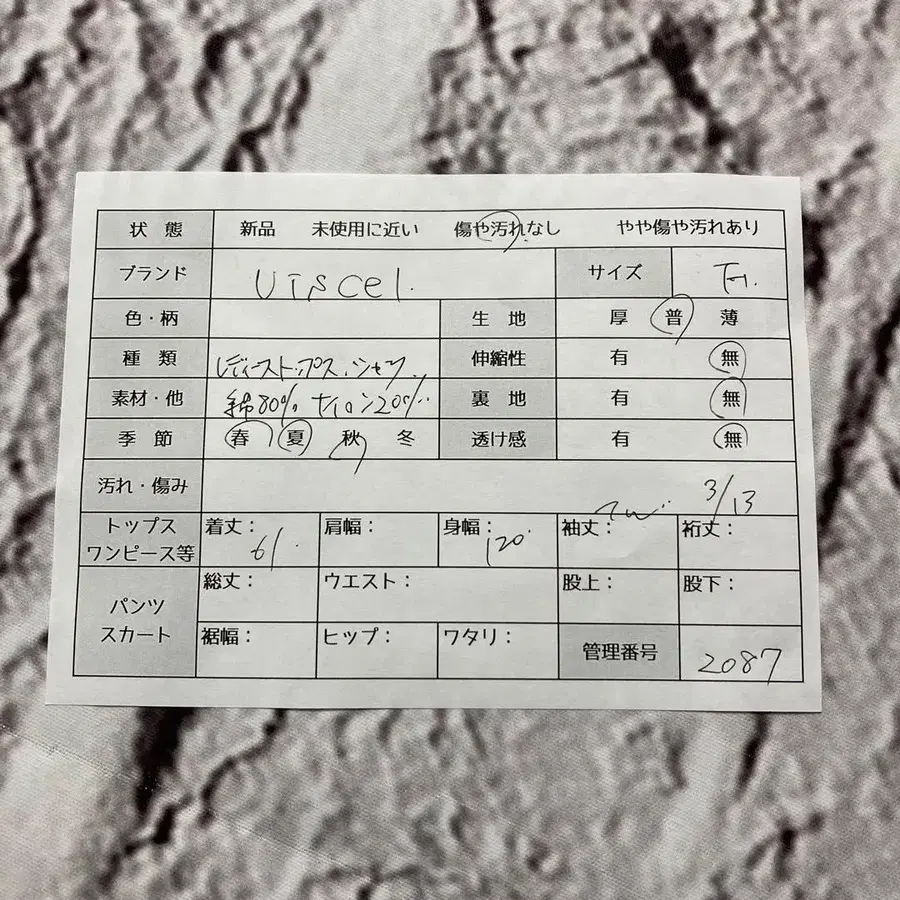 状態 新品 未使用に近い 傷や汚れなし やや傷や汚れあり
ブランド UTSCel. サイズ Fr.
色・柄 生地 厚 普 薄
種類 レディーストップス、シャツ 伸縮性 有 無
素材・他 綿80% ナイロン20% 裏地 有 無
季節 春 夏 秋 冬 透け感 有 無
汚れ・傷み 3/13
トップス ワンピース等 着丈: 61 肩幅: 身幅: 120 袖丈: 裄丈:
パンツ スカート 総丈: ウエスト: 股上: 股下:
裾幅: ヒップ: ワタリ: 管理番号 2087